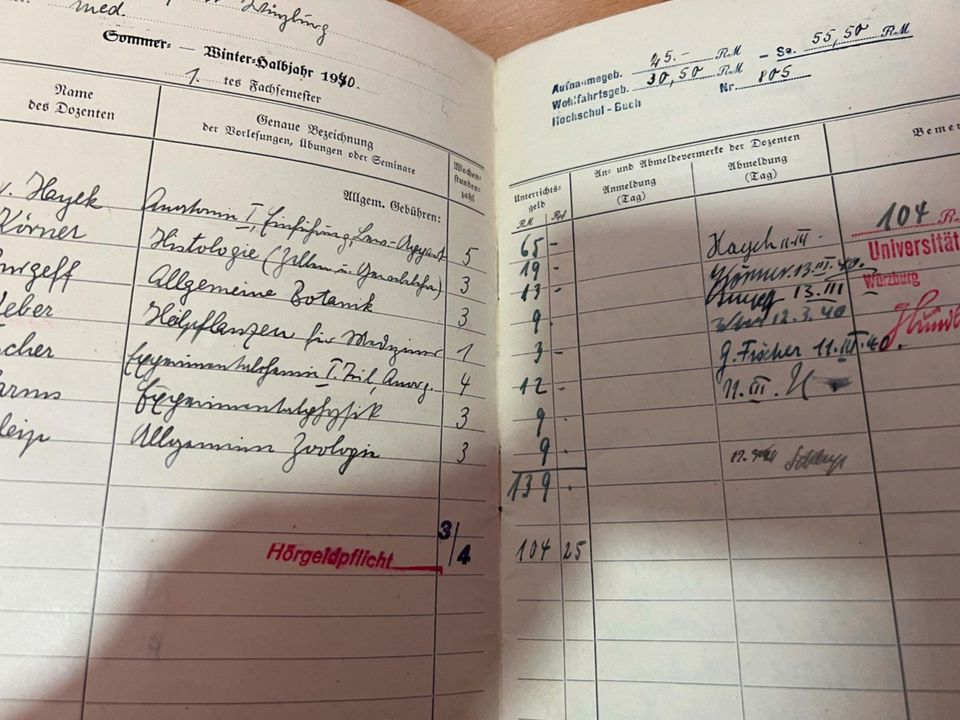 med. Würzburg
Sommer- — Winter-Halbjahr 1940.
1. tes Fachsemester
Name
des Dozenten
Genaue Bezeichnung
der Vorlesungen, Übungen oder Seminare
Wochen-
stunden-
zahl
Allgem. Gebühren:
v. Hayek Anatomie I, Einführung, 5
Körner Histologie (Zellen u. Gewebelehre) 3
Burgeff Allgemeine Botanik 3
Weber Heilpflanzen für Mediziner 1
scher Experimentalchemie I. Teil, Anorg. 4
arms Experimentalphysik 3
leip Allgemeine Zoologie 3
Hörgeldpflicht 3/4
Aufnahmegeb. RM
Wohlfahrtsgeb. 30,50 RM - Sa. 55,50 RM
Hochschul-Buch Nr. 805
Unterrichts-
geld
RM Rpf
An- und Abmeldevermerke der Dozenten
Anmeldung
(Tag)
Abmeldung
(Tag)
Bemer
65 -
19 - Hayek 11.III.
13 - Körner 13.III.40.
9. 13.III
3 - Weber 12.3.40
12 - G. Fischer 11.III.40.
9. 11.III.
9.
139.
104 25
104 R
Universität
Würzburg